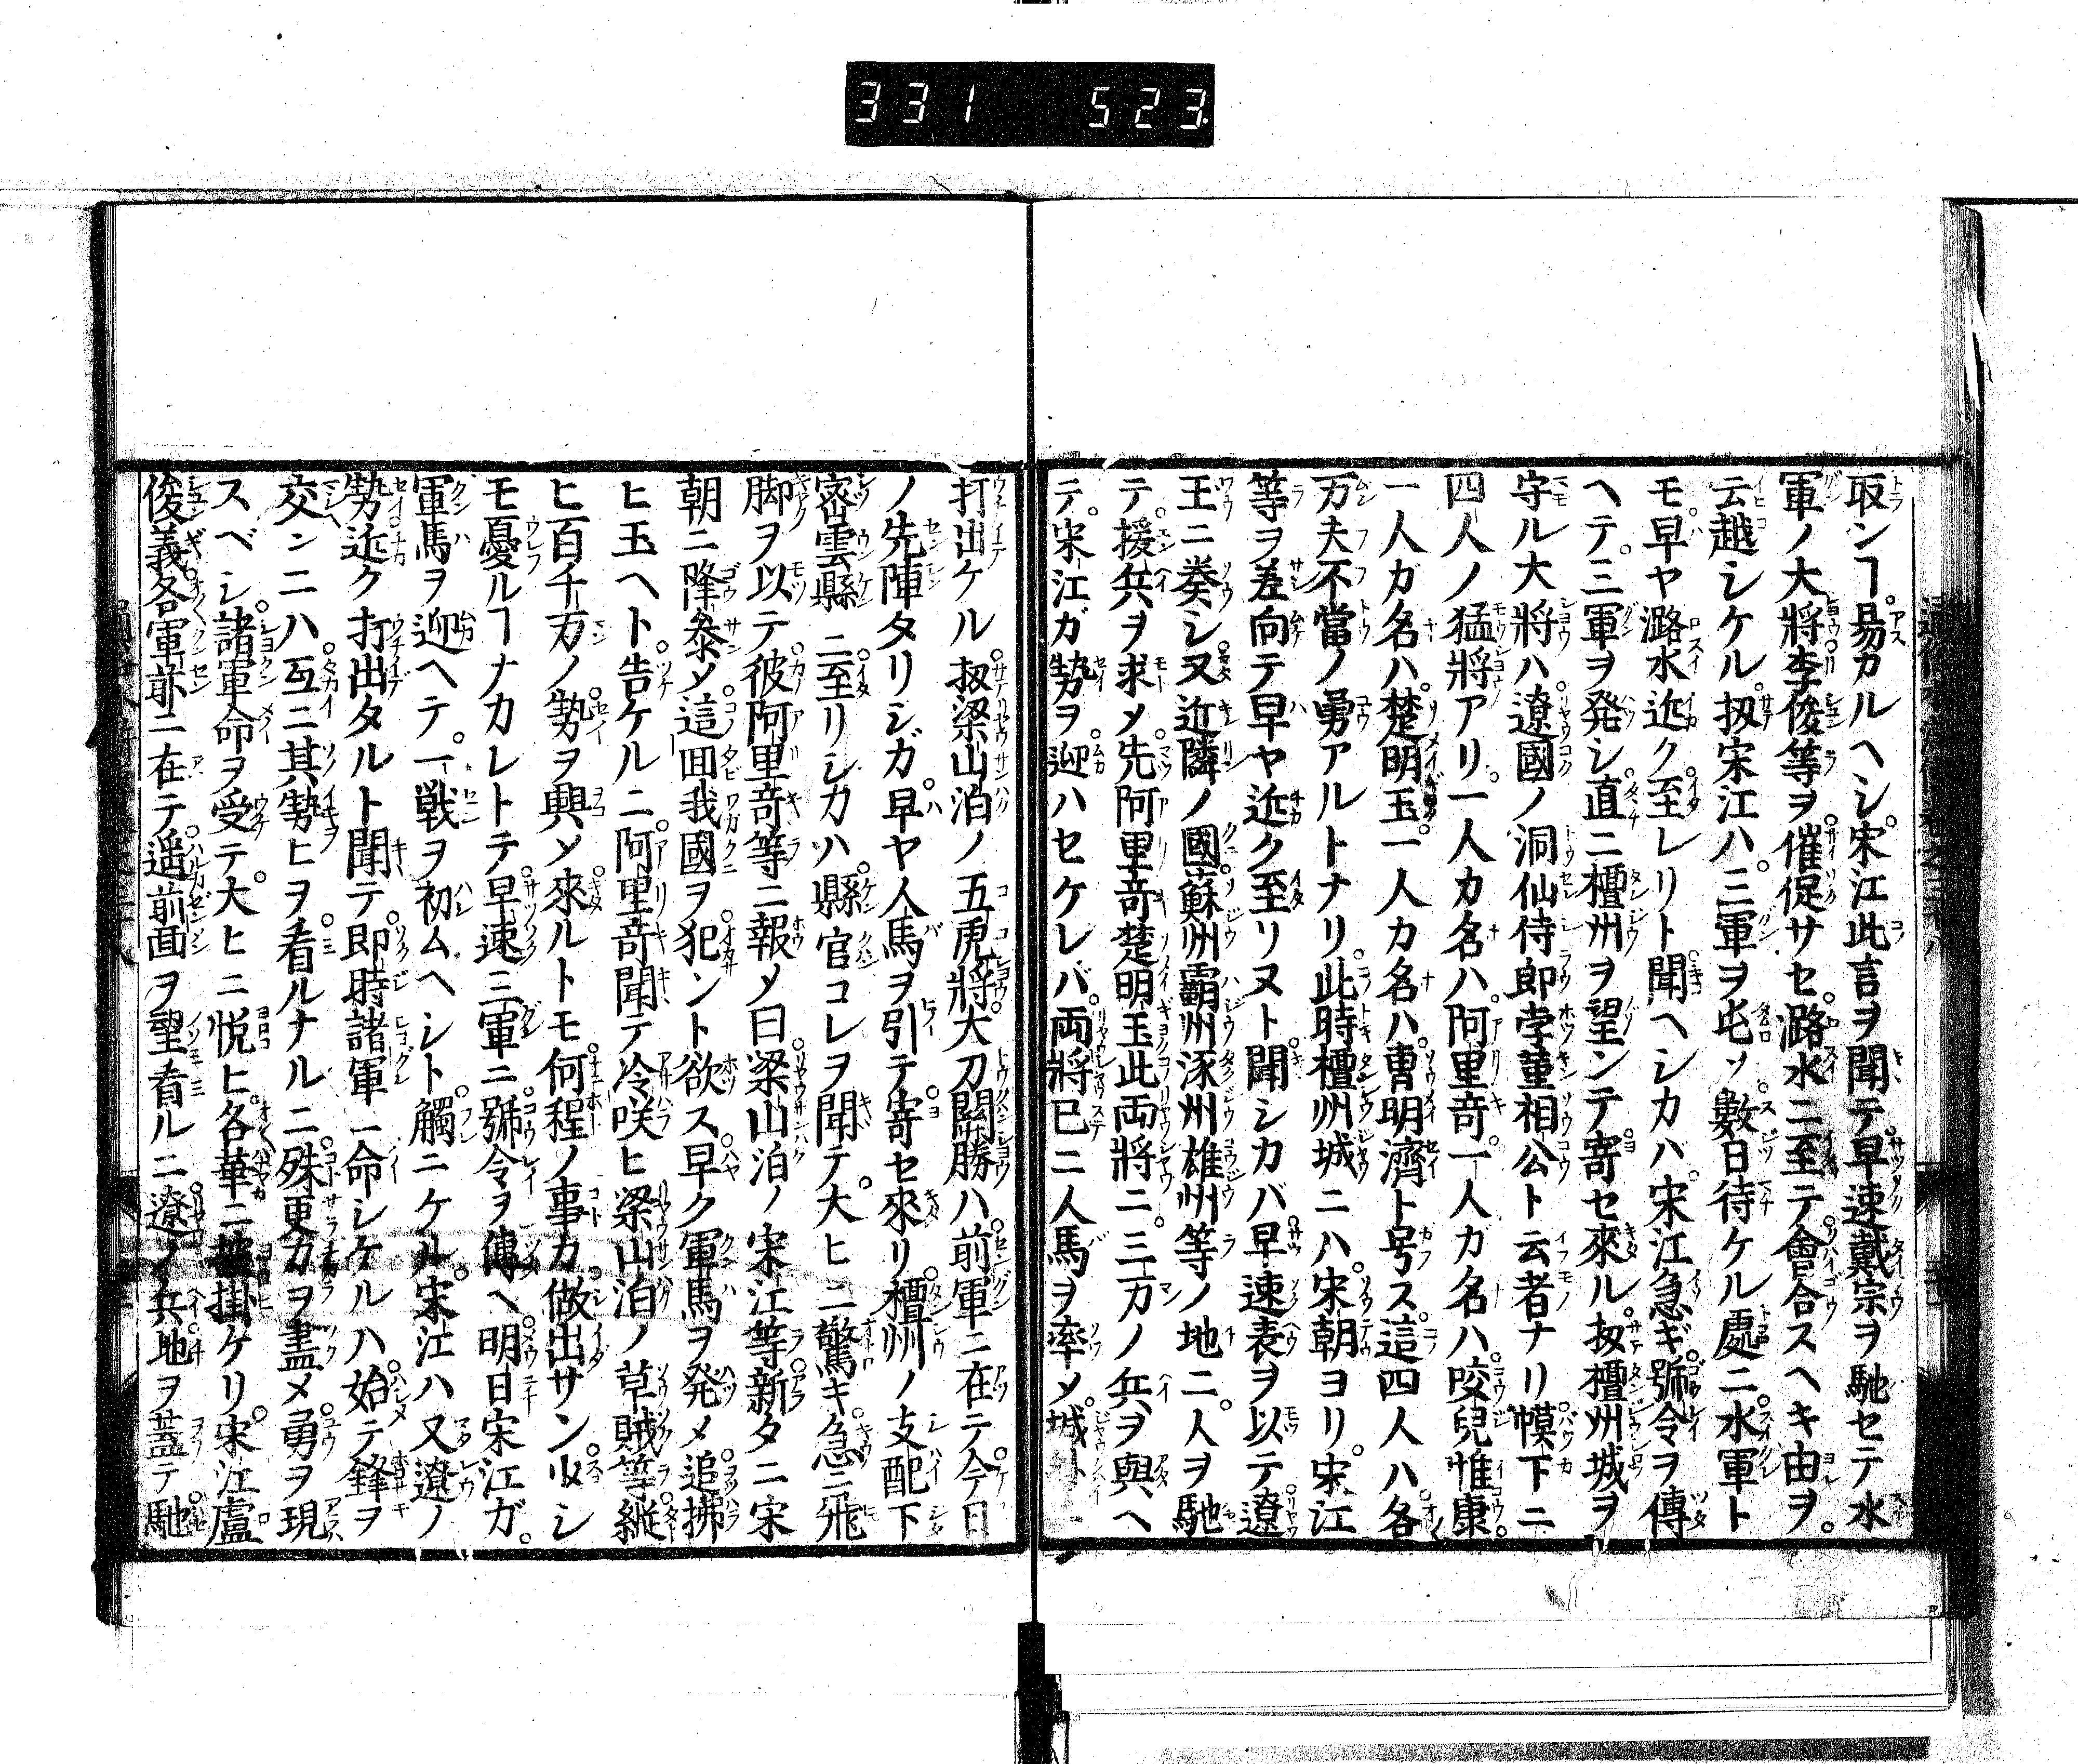 331 523
取ンヿ易カルヘシ宋江此言ヲ聞テ早速戴宗ヲ馳セテ水
軍ノ大將李俊等ヲ催促サセ潞水ニ至テ會合スヘキ由ヲ
云越シケル扨宋江ハ三軍ヲ屯ソ數日待ケル處ニ水軍ト
モ早ヤ潞水近ク至レリト聞ヘシカバ宋江急ギ號令ヲ傳
ヘテ三軍ヲ発シ直ニ檀州ヲ望ンテ寄セ來ル扨檀州城ヲ
守ル大將ハ遼國ノ洞仙侍郎孛菫相公ト云者ナリ幙下ニ
四人ノ猛將アリ一人カ名ハ阿里竒一人ガ名ハ咬兒惟康
一人ガ名ハ楚明玉一人カ名ハ曹明濟ト号ス這四人ハ各
万夫不當ノ勇アルトナリ此時檀州城ニハ宋朝ヨリ宋江
等ヲ差向テ早ヤ近ク至リヌト聞シカバ早速表ヲ以テ遼
王ニ奏シ又近隣ノ國蘇州霸州涿州雄州等ノ地ニ人ヲ馳
テ援兵ヲ求メ先阿里竒楚明玉此両將ニ三万ノ兵ヲ與ヘ
テ宋江ガ勢ヲ迎ハセケレバ両將已ニ人馬ヲ率メ城
打出ケル扨梁山泊ノ五虎將大刀關勝ハ前軍ニ在テ今日
ノ先陣タリシガ早ヤ人馬ヲ引テ寄セ來リ檀州ノ支配下
密雲縣ニ至リシカハ縣官コレヲ聞テ大ヒニ驚キ急ニ飛
脚ヲ以テ彼阿里竒等ニ報メ曰梁山泊ノ宋江等新タニ宋
朝ニ降叅メ這回我國ヲ犯ント欲ス早ク軍馬ヲ発メ追拂
ヒ玉ヘト告ケルニ阿里竒聞テ冷咲ヒ梁山泊ノ草賊等縱
ヒ百千万ノ勢ヲ興メ來ルトモ何程ノ事カ做出サン少シ
モ憂ルヿナカレトテ早速三軍ニ號令ヲ傳ヘ明日宋江ガ
軍馬ヲ迎ヘテ一戦ヲ初ムヘシト觸ニケル宋江ハ又遼ノ
勢近ク打出タルト聞テ即時諸軍ニ命シケルハ始テ鋒ヲ
交ンニハ互ニ其勢ヒヲ看ルナルニ殊更力ヲ盡メ勇ヲ現
スベシ諸軍命ヲ受テ大ヒニ悦ヒ各華ニ掛ケリ宋江盧
俊義各軍前ニ在テ遥前面ヲ望看ルニ遼ノ兵地ヲ蓋テ馳